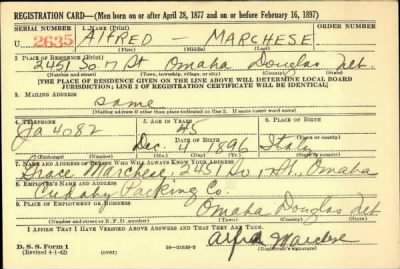 REGISTRATION CARD—(Men born on or after April 28, 1877 and on or before February 16, 1897)
SERIAL NUMBER
1. NAME (Print)
U 2635
Alfred - Marchese
(First) (Middle) (Last)
2. PLACE OF RESIDENCE (Print)
2451 So. Omaha Douglas Neb.
(Number and street) (Town, township, village, or city) (County) (State)
[THE PLACE OF RESIDENCE GIVEN ON THE LINE ABOVE WILL DETERMINE LOCAL BOARD
JURISDICTION; LINE 2 OF REGISTRATION CERTIFICATE WILL BE IDENTICAL]
3. MAILING ADDRESS
same
[Mailing address if other than place indicated on line 2. If same insert word same]
4. TELEPHONE
5. AGE IN YEARS
6. PLACE OF BIRTH
Ja 4082
45
DATE OF BIRTH
(Town or county)
Dec. 4 1896
Italy
(Exchange) (Number) (Mo.) (Day) (Yr.) (State or country)
7. NAME AND ADDRESS OF PERSON WHO WILL ALWAYS KNOW YOUR ADDRESS
Grace Marchese, 2451 So Omaha
8. EMPLOYER'S NAME AND ADDRESS
Cudahy Packing Co.
9. PLACE OF EMPLOYMENT OR BUSINESS
Omaha Douglas Neb.
(Number and street or R. F. D. number) (Town) (County) (State)
I AFFIRM THAT I HAVE VERIFIED ABOVE ANSWERS AND THAT THEY ARE TRUE.
D. S. S. Form 1
(Revised 4-1-42) (over)
Alfred Marchese
(Registrant's signature)